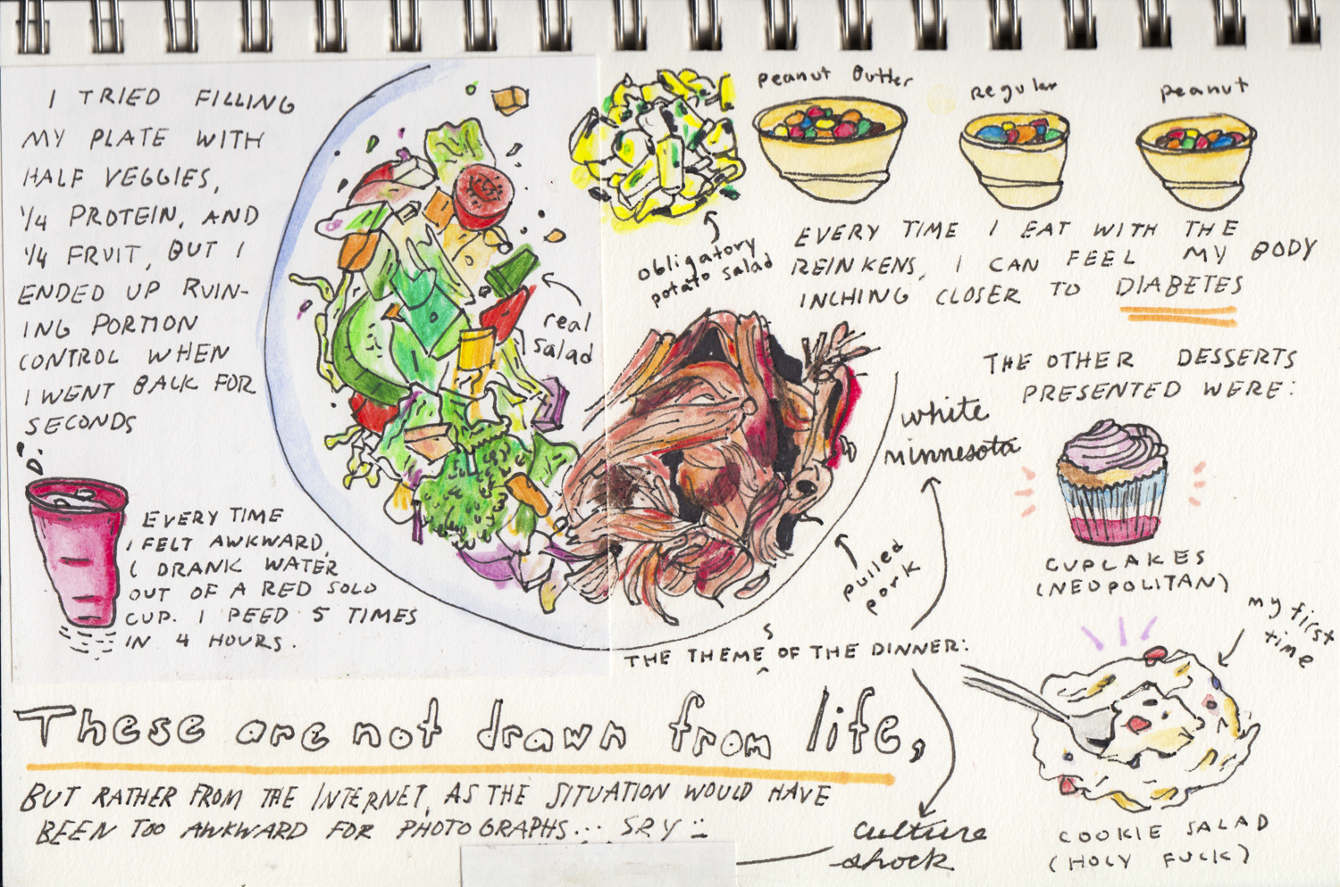 I TRIED FILLING
MY PLATE WITH
HALF VEGGIES,
1/4 PROTEIN, AND
1/4 FRUIT, BUT I
ENDED UP RUIN-
ING PORTION
CONTROL WHEN
I WENT BACK FOR
SECONDS
EVERY TIME
I FELT AWKWARD,
I DRANK WATER
OUT OF A RED SOLO
CUP. I PEED 5 TIMES
IN 4 HOURS.
real
salad
obligatory
potato salad
peanut butter
regular
peanut
EVERY TIME I EAT WITH THE
REINKENS, I CAN FEEL MY BODY
INCHING CLOSER TO DIABETES
THE OTHER DESSERTS
PRESENTED WERE:
CUPCAKES
(NEOPOLITAN)
my first
time
COOKIE SALAD
(HOLY FUCK)
pulled
pork
THE THEMES OF THE DINNER:
white
minnesota
culture
shock
These are not drawn from life,
BUT RATHER FROM THE INTERNET, AS THE SITUATION WOULD HAVE
BEEN TOO AWKWARD FOR PHOTOGRAPHS... SRY :-